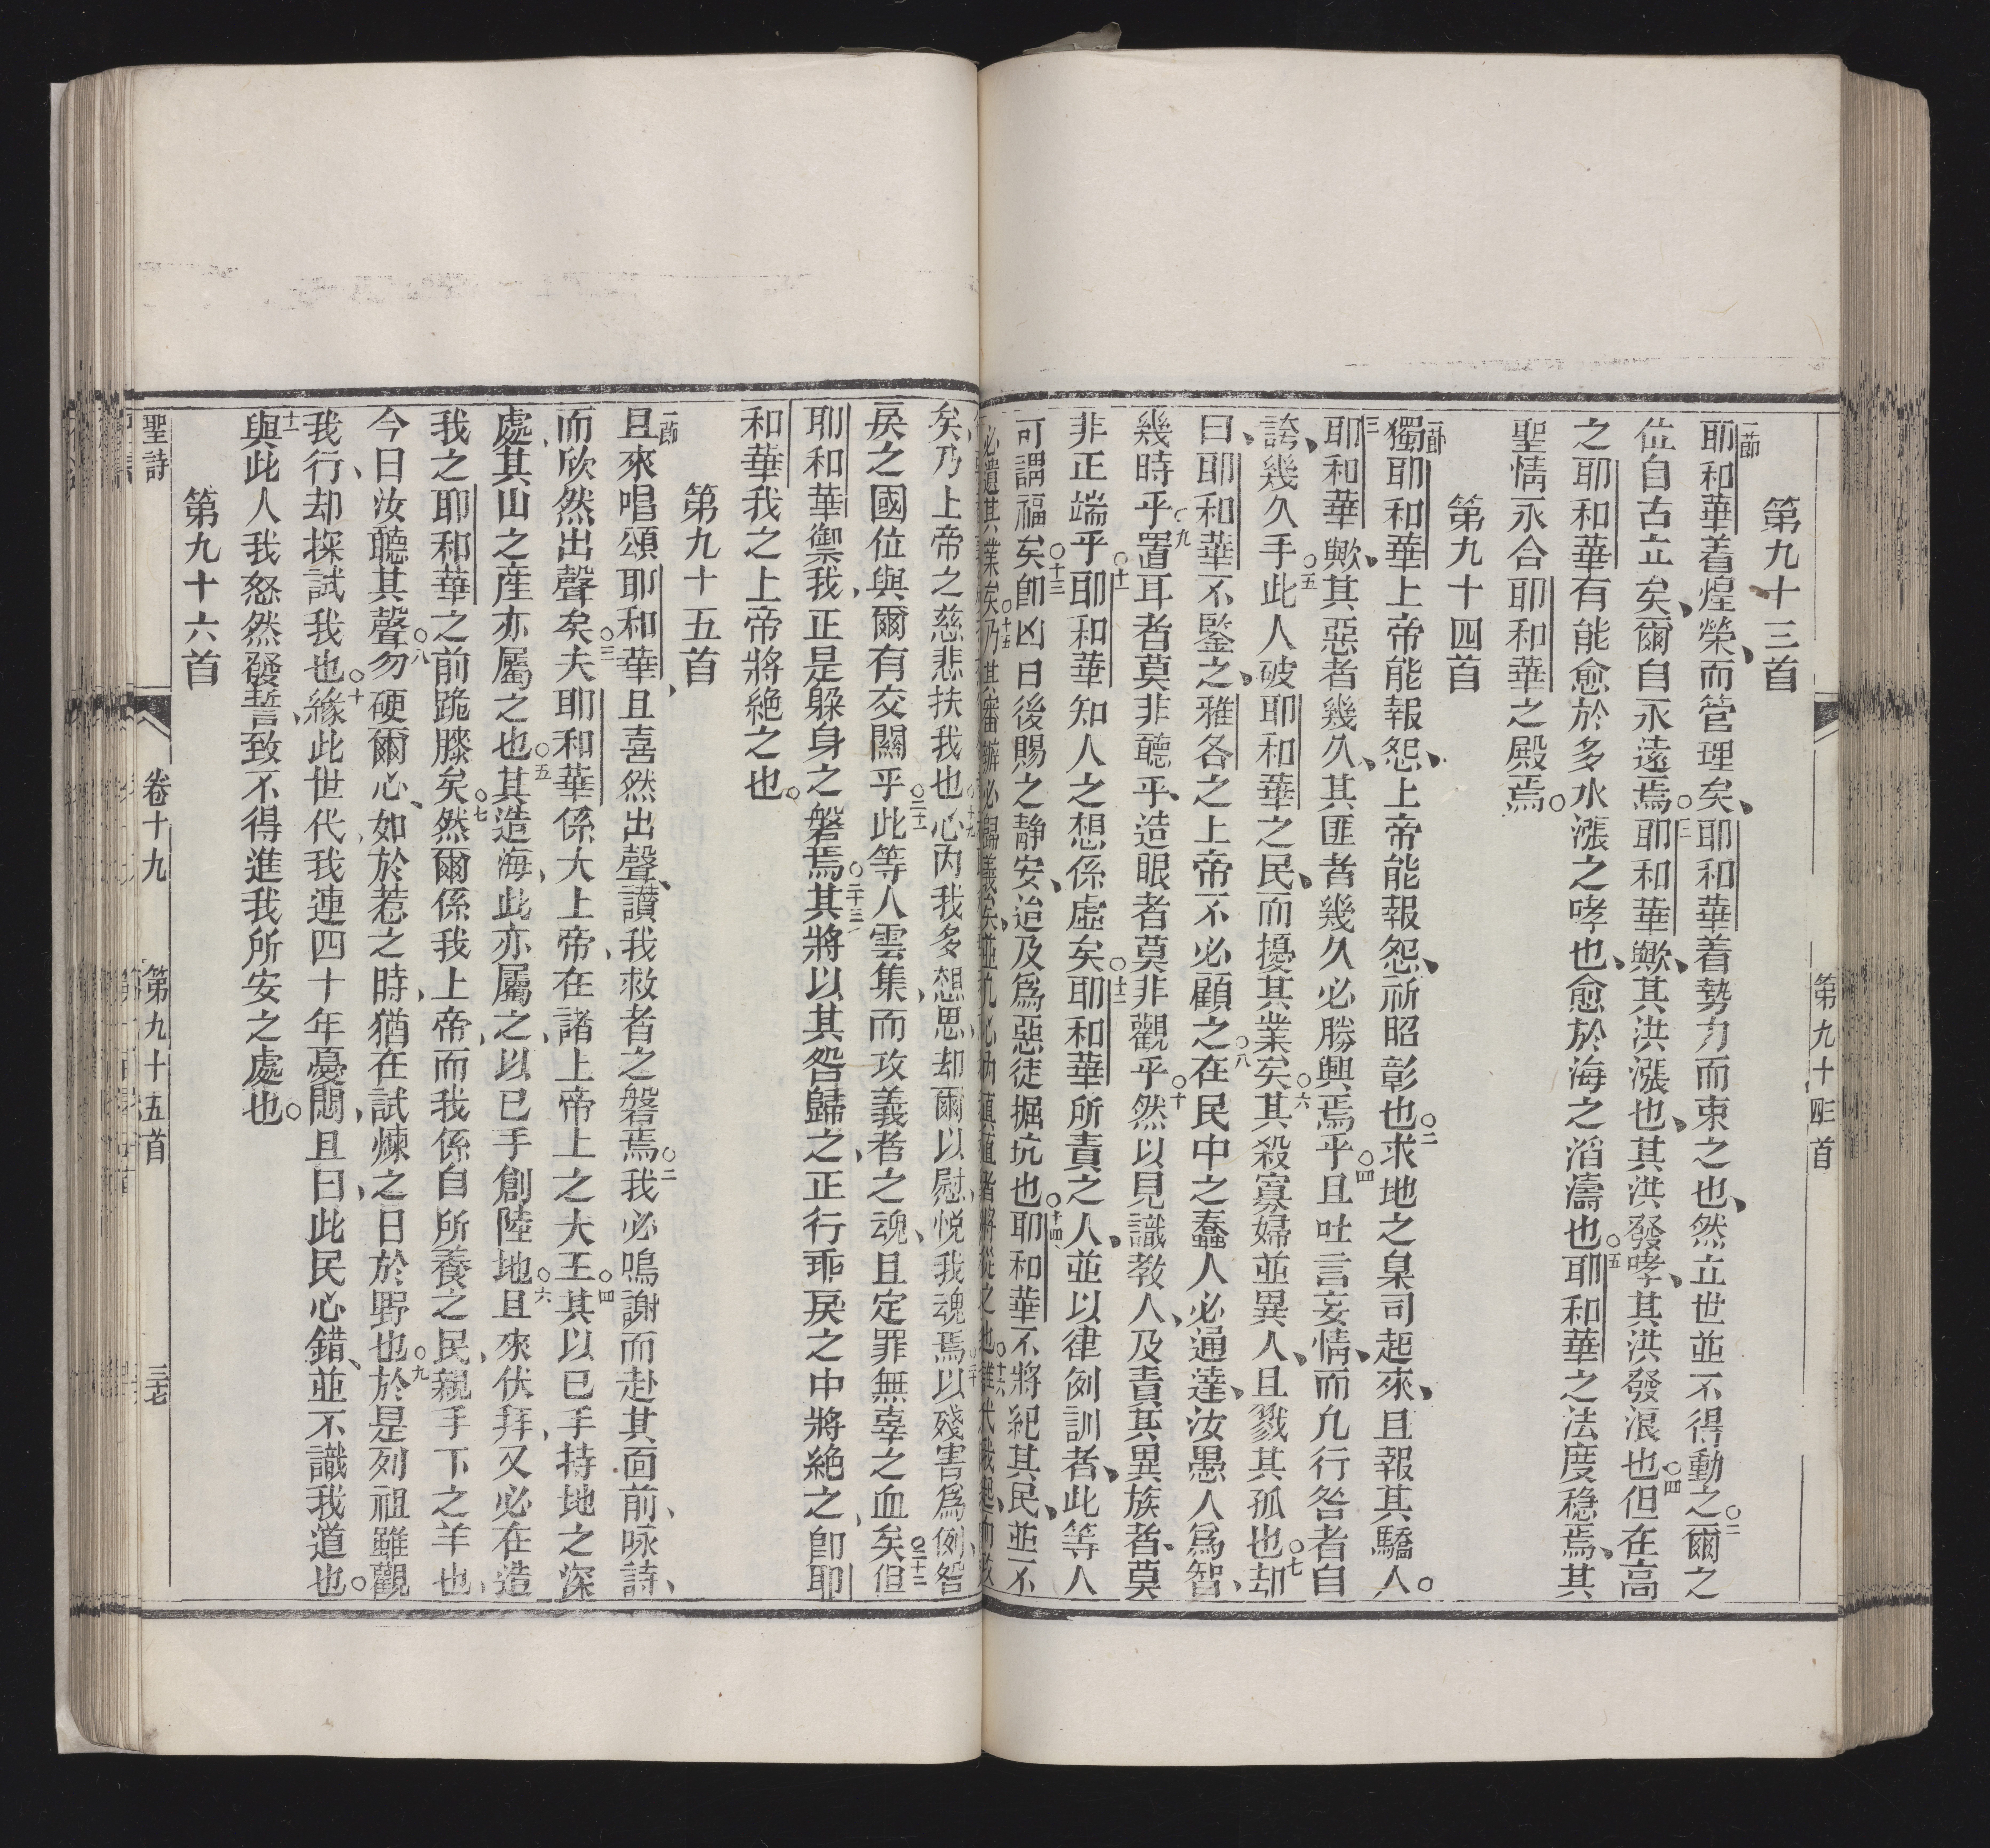 第九十四三首
第九十三首
一節耶和華着煌榮、而管理矣、耶和華着勢力而束之也、然立世並不得動之○二爾之
位自古立矣、爾自永遠焉○三耶和華歟、其洪漲也、其洪發哮、其洪發浪也○四但在高
之耶和華有能愈於多水漲之哮也、愈於海之滔濤也○五耶和華之法度穏焉、其
聖情永合耶和華之殿焉○
第九十四首
一節獨耶和華上帝能報怨、上帝能報怨、祈昭彰也○二求地之臬司起來、且報其驕人○
三耶和華歟、其惡者幾久、其匪者幾久必勝興焉乎○四且吐言妄情、而凢行咎者自
誇、幾久乎○五此人破耶和華之民、而擾其業矣○六其殺寡婦並異人、且戮其孤也○七却
曰、耶和華不鑒之、雅各之上帝不必顧之○八在民中之蠢人必通達、汝愚人爲智、
幾時乎○九置耳者莫非聽乎、造眼者莫非觀乎○十然以見識教人、及責其異族者、莫
非正端乎○十一耶和華知人之想係虛矣○十二耶和華所責之人、並以律例訓者、此等人
可謂福矣○十三卽凶日後賜之靜安、迨及爲惡徒掘坑也○十四耶和華不將紀其民、並不
必遺其業矣○十五乃其審辦必歸義矣、並凢必內
矣、乃上帝之慈悲扶我也○十九心內我多想思、却爾以慰悅我魂焉○二十以殘害爲例、咎
戾之國位與爾有交關乎○二十一此等人雲集、而攻義者之魂、且定罪無辜之血矣○二十二但
耶和華禦我、正是躱身之磐焉○二十三其將以其咎歸之、正行乖戾之中將絶之、卽耶
和華我之上帝將絶之也○
第九十五首
一節且來唱頌耶和華、且喜然出聲、讃我救者之磐焉○二我必鳴謝而赴其面前、咏詩、
而欣然出聲矣○三夫耶和華係大上帝、在諸上帝上之大王○四其以已手持地之深
處、其山之產亦屬之也○五其造海、此亦屬之、以已手創陸地○六且來伏拜、又必在造
我之耶和華之前跪膝矣○七然爾係我上帝、而我係自所養之民、親手下之羊也、
今日汝聽其聲○八勿硬爾心、如於惹之時、猶在試煉之日於野也○九於是列祖雖觀
我行、却探試我也○十緣此世代、我連四十年憂悶、且曰、此民心錯、並不識我道也○
十一與此人我怒然發誓、致不得進我所安之處也○
第九十六首
聖詩 卷十九 第九十五首 三七